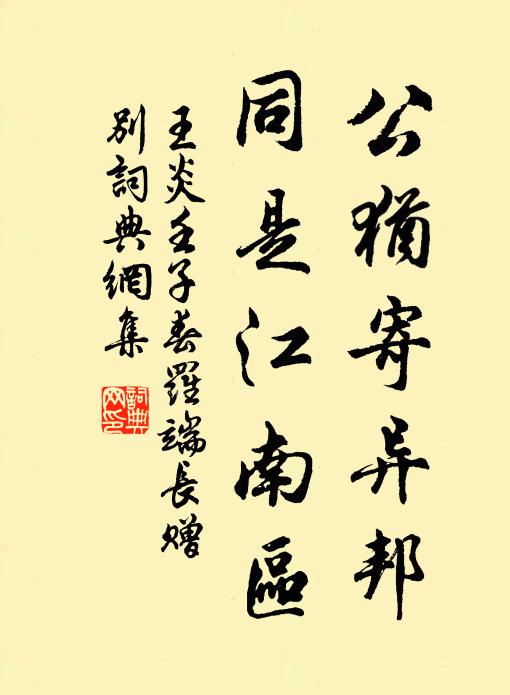 公猶寄异邦
同是江南區
王炎壬子春羅端長贈
別詞典網集
詞典
网印